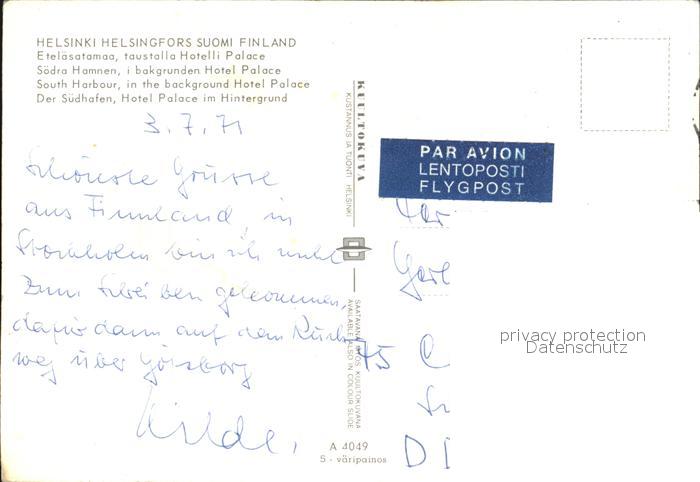 HELSINKI HELSINGFORS SUOMI FINLAND
Eteläsatamaa, taustalla Hotelli Palace
Södra Hamnen, i bakgrunden Hotel Palace
South Harbour, in the background Hotel Palace
Der Südhafen, Hotel Palace im Hintergrund
3.7.71
Schönste Grüsse
aus Finnland, in
Stockholm bin ich nicht
zum Schreiben gekommen,
dafür dann auf dem Rück
weg über Göteborg
KUULTOKUVA
KUSTANNUS JA TUONTI HELSINKI
SAATAVANA MYÖS KUULTOKUVANA
AVAILABLE ALSO IN COLOUR SLIDE
A 4049
5 - väripainos
PAR AVION
LENTOPOSTI
FLYGPOST
75
D
privacy protection
Datenschutz